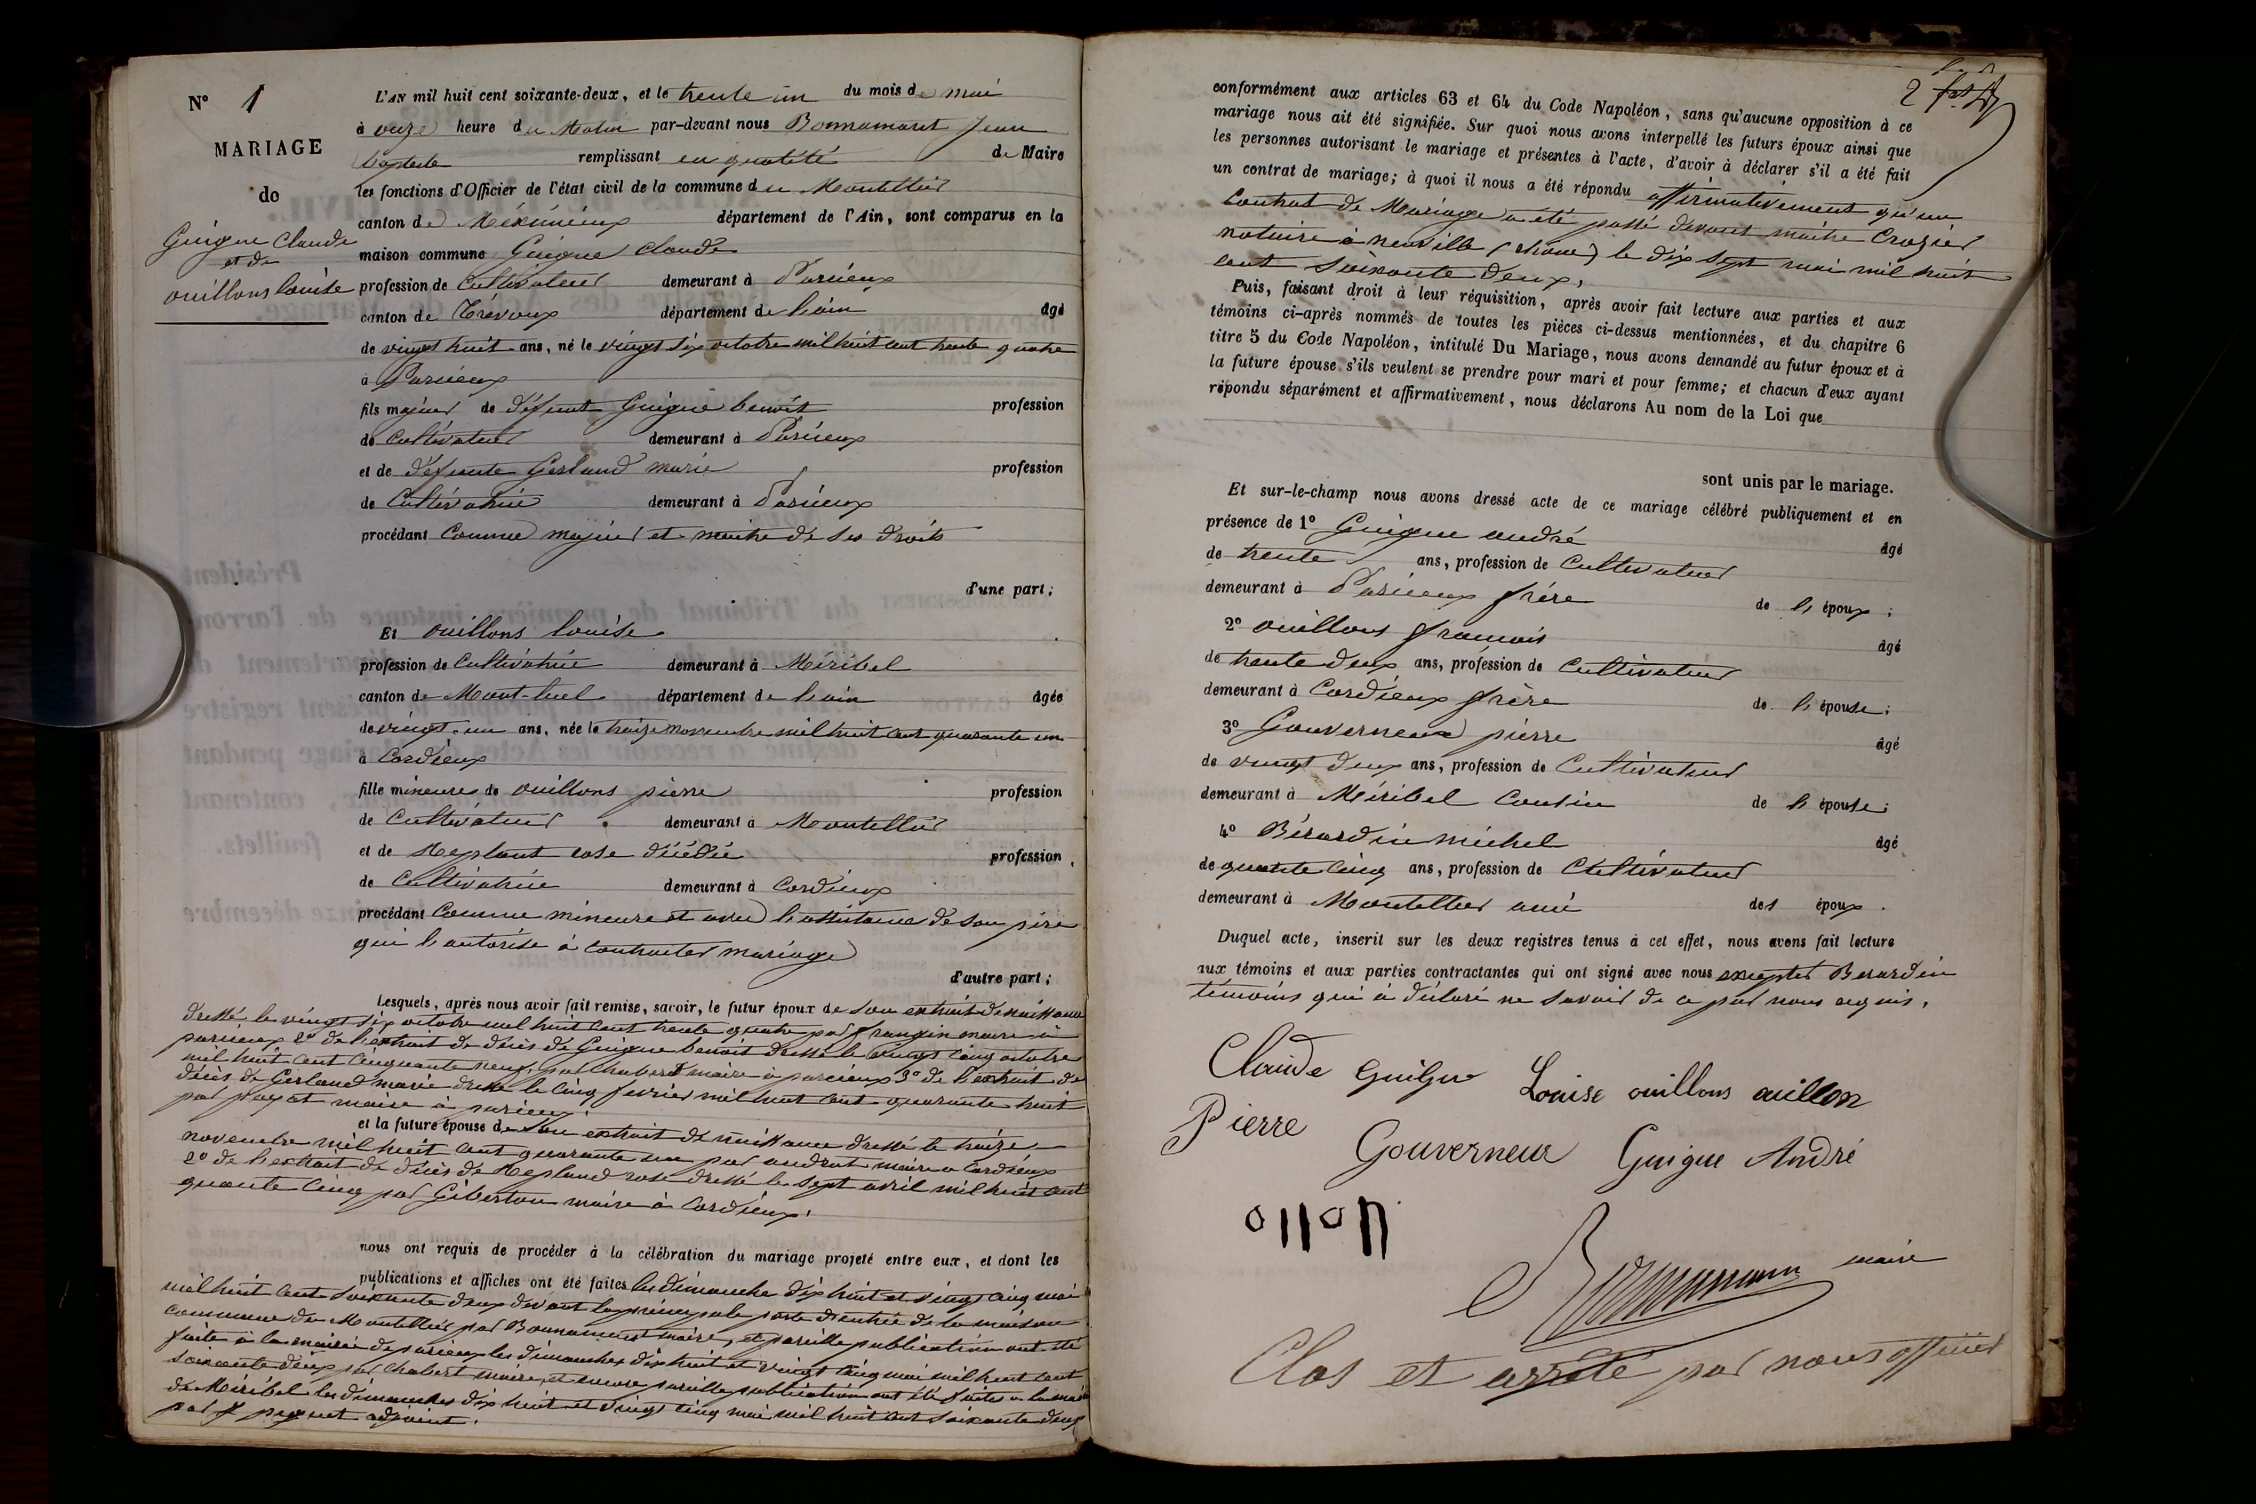 N° 1
MARIAGE
de
Guigue Claude
et de
ouillons louise
L'AN mil huit cent soixante-deux, et le trente un du mois de mai
à onze heure du Matin par-devant nous Bonnamaret Jean
baptiste remplissant en qualité de Maire
les fonctions d'Officier de l'état civil de la commune du Montellier
canton de Méximieux département de l'Ain, sont comparus en la
maison commune Guigue claude
profession de Cultivateur demeurant à Parcieux
canton de Trévoux département de l'ain agé
de vingt huit ans, né le vingt six octobre mil huit cent trente quatre
à Parcieux
fils majeur de défunt Guigue benoit profession
de Cultivateur demeurant à Parcieux
et de défunte Gerland marie profession
de Cultivatrice demeurant à Parcieux
procédant Comme majeur et maitre de ses droits
d'une part;
Et ouillons louise
profession de Cultivatrice demeurant à Méribel
canton de Mont-luel département de l'ain agée
de vingt-un ans, née le treize novembre mil huit cent quarante un
à Cordieux
fille mineure de ouillons pierre profession
de Cultivateur demeurant à Montellier
et de Meplant rose décédée profession
de Cultivatrice demeurant à Cordieux
procédant Comme mineure et avec l'assistance de son père
qui l'autorise à contracter mariage
d'autre part;
Lesquels, après nous avoir fait remise, savoir, le futur époux de son extrait de naissance
dressé le vingt six octobre mil huit cent trente quatre par frangin maire à
parcieux 2° de l'extrait de décès de Guigue benoit dressé le vingt cinq octobre
mil huit cent cinquante neuf, par chabert maire à parcieux 3° de l'extrait de
décès de Gerland marie dressé le cinq fevrier mil huit cent quarante huit
par payet maire à parcieux.
et la future épouse de son extrait de naissance dressé le treize
novembre mil huit cent quarante un par andrat maire à Cordieux
2° de l'extrait de décès de Mepland rose dressé le sept avril mil huit cent
quarante cinq par Giberton maire à Cordieux.
nous ont requis de procéder à la célébration du mariage projeté entre eux, et dont les
publications et affiches ont été faites les dimanche dix huit et vingt cinq mai
mil huit cent soixante deux devant la principale porte d'entrée de la maison
commune du Montellier par Bonnamaret maire, et pareille publication ont été
faite à la mairie de parcieux les dimanches dix huit et vingt cinq mai mil huit cent
soixante deux par chabert maire, et encore pareille publication ont été faites à la mairie
de Méribel les dimanches dix huit et vingt cinq mai mil huit cent soixante deux
par paquet adjoint.
2
conformément aux articles 63 et 64 du Code Napoléon, sans qu'aucune opposition à ce
mariage nous ait été signifiée. Sur quoi nous avons interpellé les futurs époux ainsi que
les personnes autorisant le mariage et présentes à l'acte, d'avoir à déclarer s'il a été fait
un contrat de mariage; à quoi il nous a été répondu affirmativement qu'un
Contrat de Mariage a été passé devant maitre Crozier
notaire à neuville (rhone) le dix sept mai mil huit
cent soixante deux,
Puis, faisant droit à leur réquisition, après avoir fait lecture aux parties et aux
témoins ci-après nommés de toutes les pièces ci-dessus mentionnées, et du chapitre 6
titre 5 du Code Napoléon, intitulé Du Mariage, nous avons demandé au futur époux et à
la future épouse s'ils veulent se prendre pour mari et pour femme; et chacun d'eux ayant
répondu séparément et affirmativement, nous déclarons Au nom de la Loi que
sont unis par le mariage.
Et sur-le-champ nous avons dressé acte de ce mariage célébré publiquement et en
présence de 1° Guigue andré âgé
de trente ans, profession de Cultivateur
demeurant à Parcieux frère de l'époux;
2° ouillons francois âgé
de trente deux ans, profession de Cultivateur
demeurant à Cordieux frère de l'épouse;
3° Gouverneur pierre âgé
de vingt deux ans, profession de Cultivateur
demeurant à Méribel Cousin de l'épouse;
4° Bérardin michel âgé
de quarante cinq ans, profession de Cultivateur
demeurant à Montellier ami des époux.
Duquel acte, inscrit sur les deux registres tenus à cet effet, nous avons fait lecture
aux témoins et aux parties contractantes qui ont signé avec nous excepter Berardin
témoins qui à déclaré ne savoir de ce par nous requis.
Claude Guigue Louise ouillons ouillon
Pierre Gouverneur Guigue André
ollon
maire
Clos et arrêté par nous officier